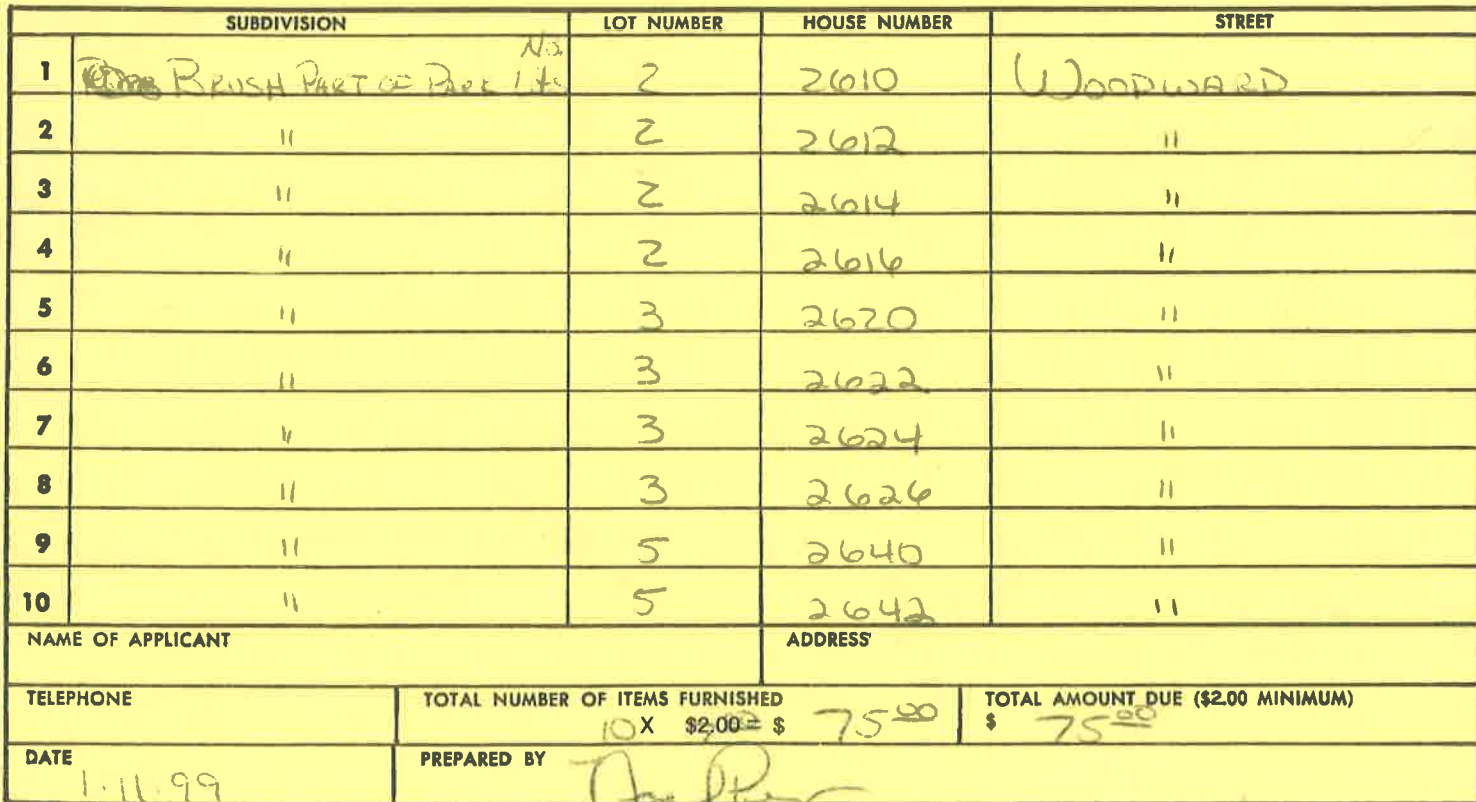 SUBDIVISION LOT NUMBER HOUSE NUMBER STREET
No.
1 BRUSH PART OF PARK Lts 2 2610 WOODWARD
2 " 2 2612 "
3 " 2 2614 "
4 " 2 2616 "
5 " 3 2620 "
6 " 3 2622 "
7 " 3 2624 "
8 " 3 2626 "
9 " 5 2640 "
10 " 5 2642 "
NAME OF APPLICANT ADDRESS
TELEPHONE TOTAL NUMBER OF ITEMS FURNISHED TOTAL AMOUNT DUE ($2.00 MINIMUM)
10 X $2.00 = $ 75 00 $ 75 00
DATE PREPARED BY
1.11.99